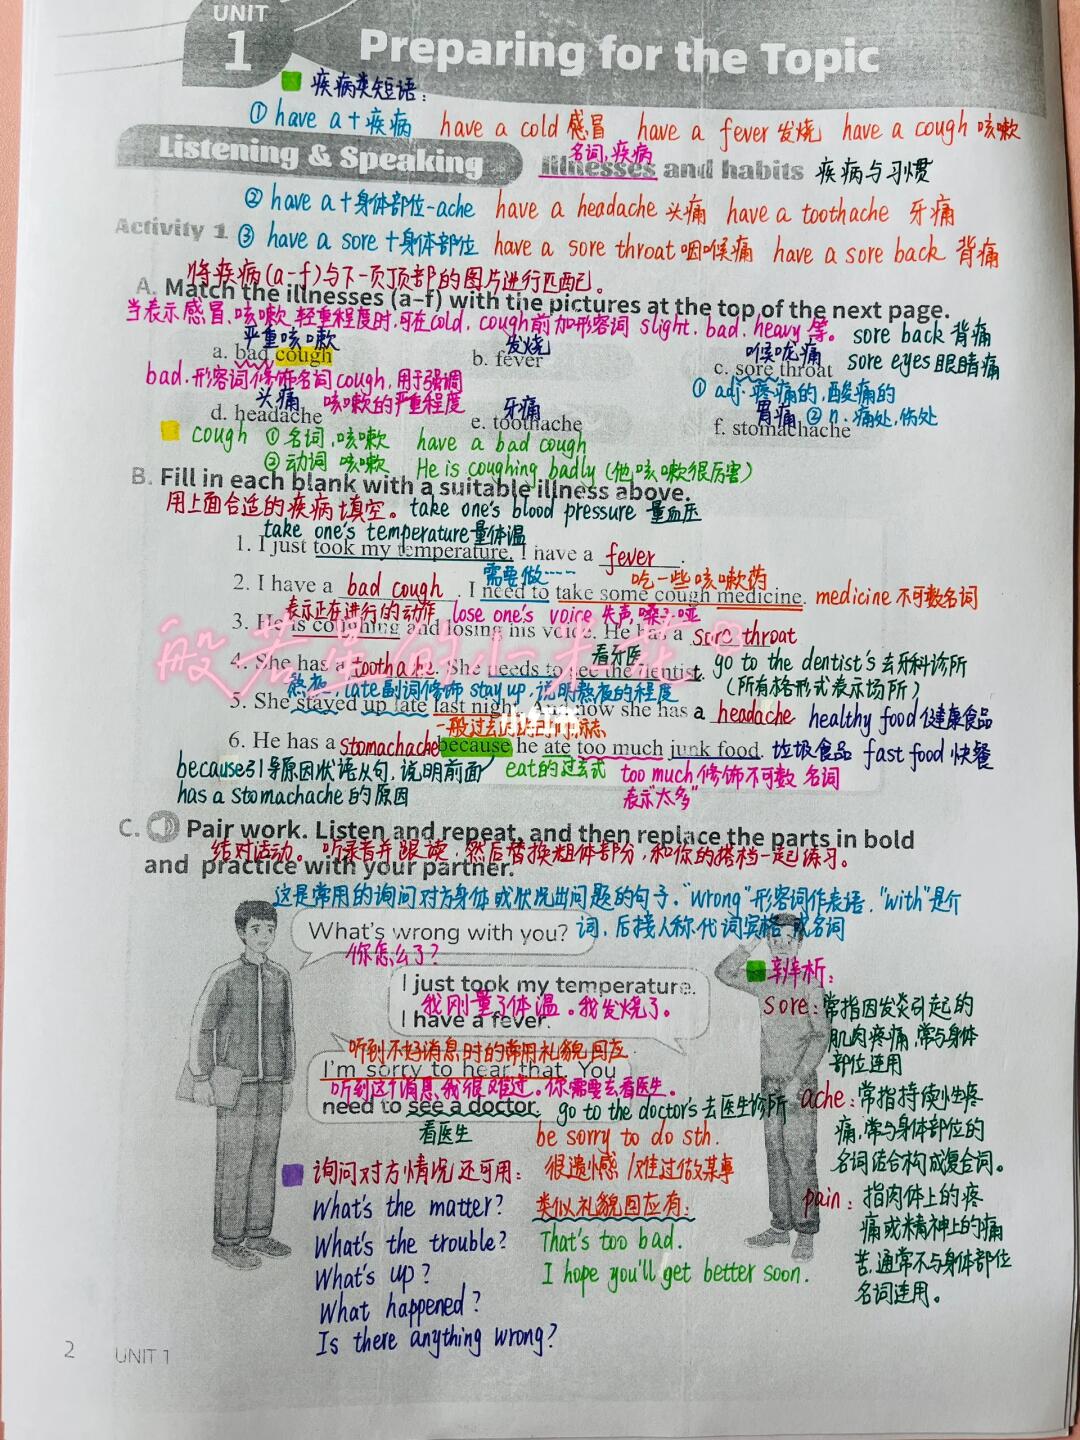 UNIT
1
Preparing for the Topic
疾病类短语:
① have a+疾病 have a cold 感冒 have a fever 发烧 have a cough 咳嗽
名词,疾病
Listening & Speaking Illnesses and habits 疾病与习惯
② have a+身体部位-ache have a headache 头痛 have a toothache 牙痛
Activity 1 ③ have a sore+身体部位 have a sore throat 咽喉痛 have a sore back 背痛
将疾病(a-f)与下一页顶部的图片进行匹配。
A. Match the illnesses (a–f) with the pictures at the top of the next page.
当表示感冒、咳嗽轻重程度时,可在cold, cough前加形容词 slight, bad, heavy 等。 sore back 背痛
严重咳嗽 发烧 喉咙痛 sore eyes 眼睛痛
a. bad cough b. fever c. sore throat
bad.形容词修饰名词cough,用于强调 ① adj.疼痛的,酸痛的
头痛 咳嗽的严重程度 牙痛 胃痛 ② n.痛处,伤处
d. headache e. toothache f. stomachache
cough ①名词,咳嗽 have a bad cough
②动词 咳嗽 He is coughing badly (他咳嗽很厉害)
B. Fill in each blank with a suitable illness above.
用上面合适的疾病填空。 take one's blood pressure 量血压
take one's temperature 量体温
1. I just took my temperature. I have a fever.
需要做…… 吃一些咳嗽药
2. I have a bad cough. I need to take some cough medicine. medicine 不可数名词
表示正在进行的动作 lose one's voice 失声,嗓子哑
3. He is coughing and losing his voice. He has a sore throat
看牙医
4. She has a toothache. She needs to see the dentist. go to the dentist's 去牙科诊所
熬夜,late副词修饰 stay up,说明熬夜的程度 (所有格形式表示场所)
5. She stayed up late last night, and now she has a headache healthy food 健康食品
小红书
6. He has a stomachache because he ate too much junk food. 垃圾食品 fast food 快餐
because引导原因状语从句,说明前面 eat的过去式 too much修饰不可数名词
has a stomachache的原因 表示"太多"
C. Pair work. Listen and repeat, and then replace the parts in bold
结对活动。听录音并跟读,然后替换粗体部分,和你的搭档一起练习。
and practice with your partner.
这是常用的询问对方身体或状况出问题的句子。"wrong"形容词作表语,"with"是介
What's wrong with you? 词,后接人称代词宾格或名词
你怎么了?
辨析:
I just took my temperature.
我刚量了体温。我发烧了。
I have a fever.
sore:常指因发炎引起的
肌肉疼痛,常与身体
部位连用
听到不好消息时的常用礼貌回应
I'm sorry to hear that. You
听到这个消息我很难过。你需要去看医生。
need to see a doctor. go to the doctor's 去医生诊所
看医生 be sorry to do sth.
很遗憾/难过做某事
ache:常指持续性疼
痛,常与身体部位的
名词结合构成复合词。
pain:指肉体上的疼
痛或精神上的痛
苦,通常不与身体部位
名词连用。
询问对方情况还可用:
What's the matter?
What's the trouble?
What's up?
What happened?
Is there anything wrong?
类似礼貌回应有:
That's too bad.
I hope you'll get better soon.
2 UNIT 1